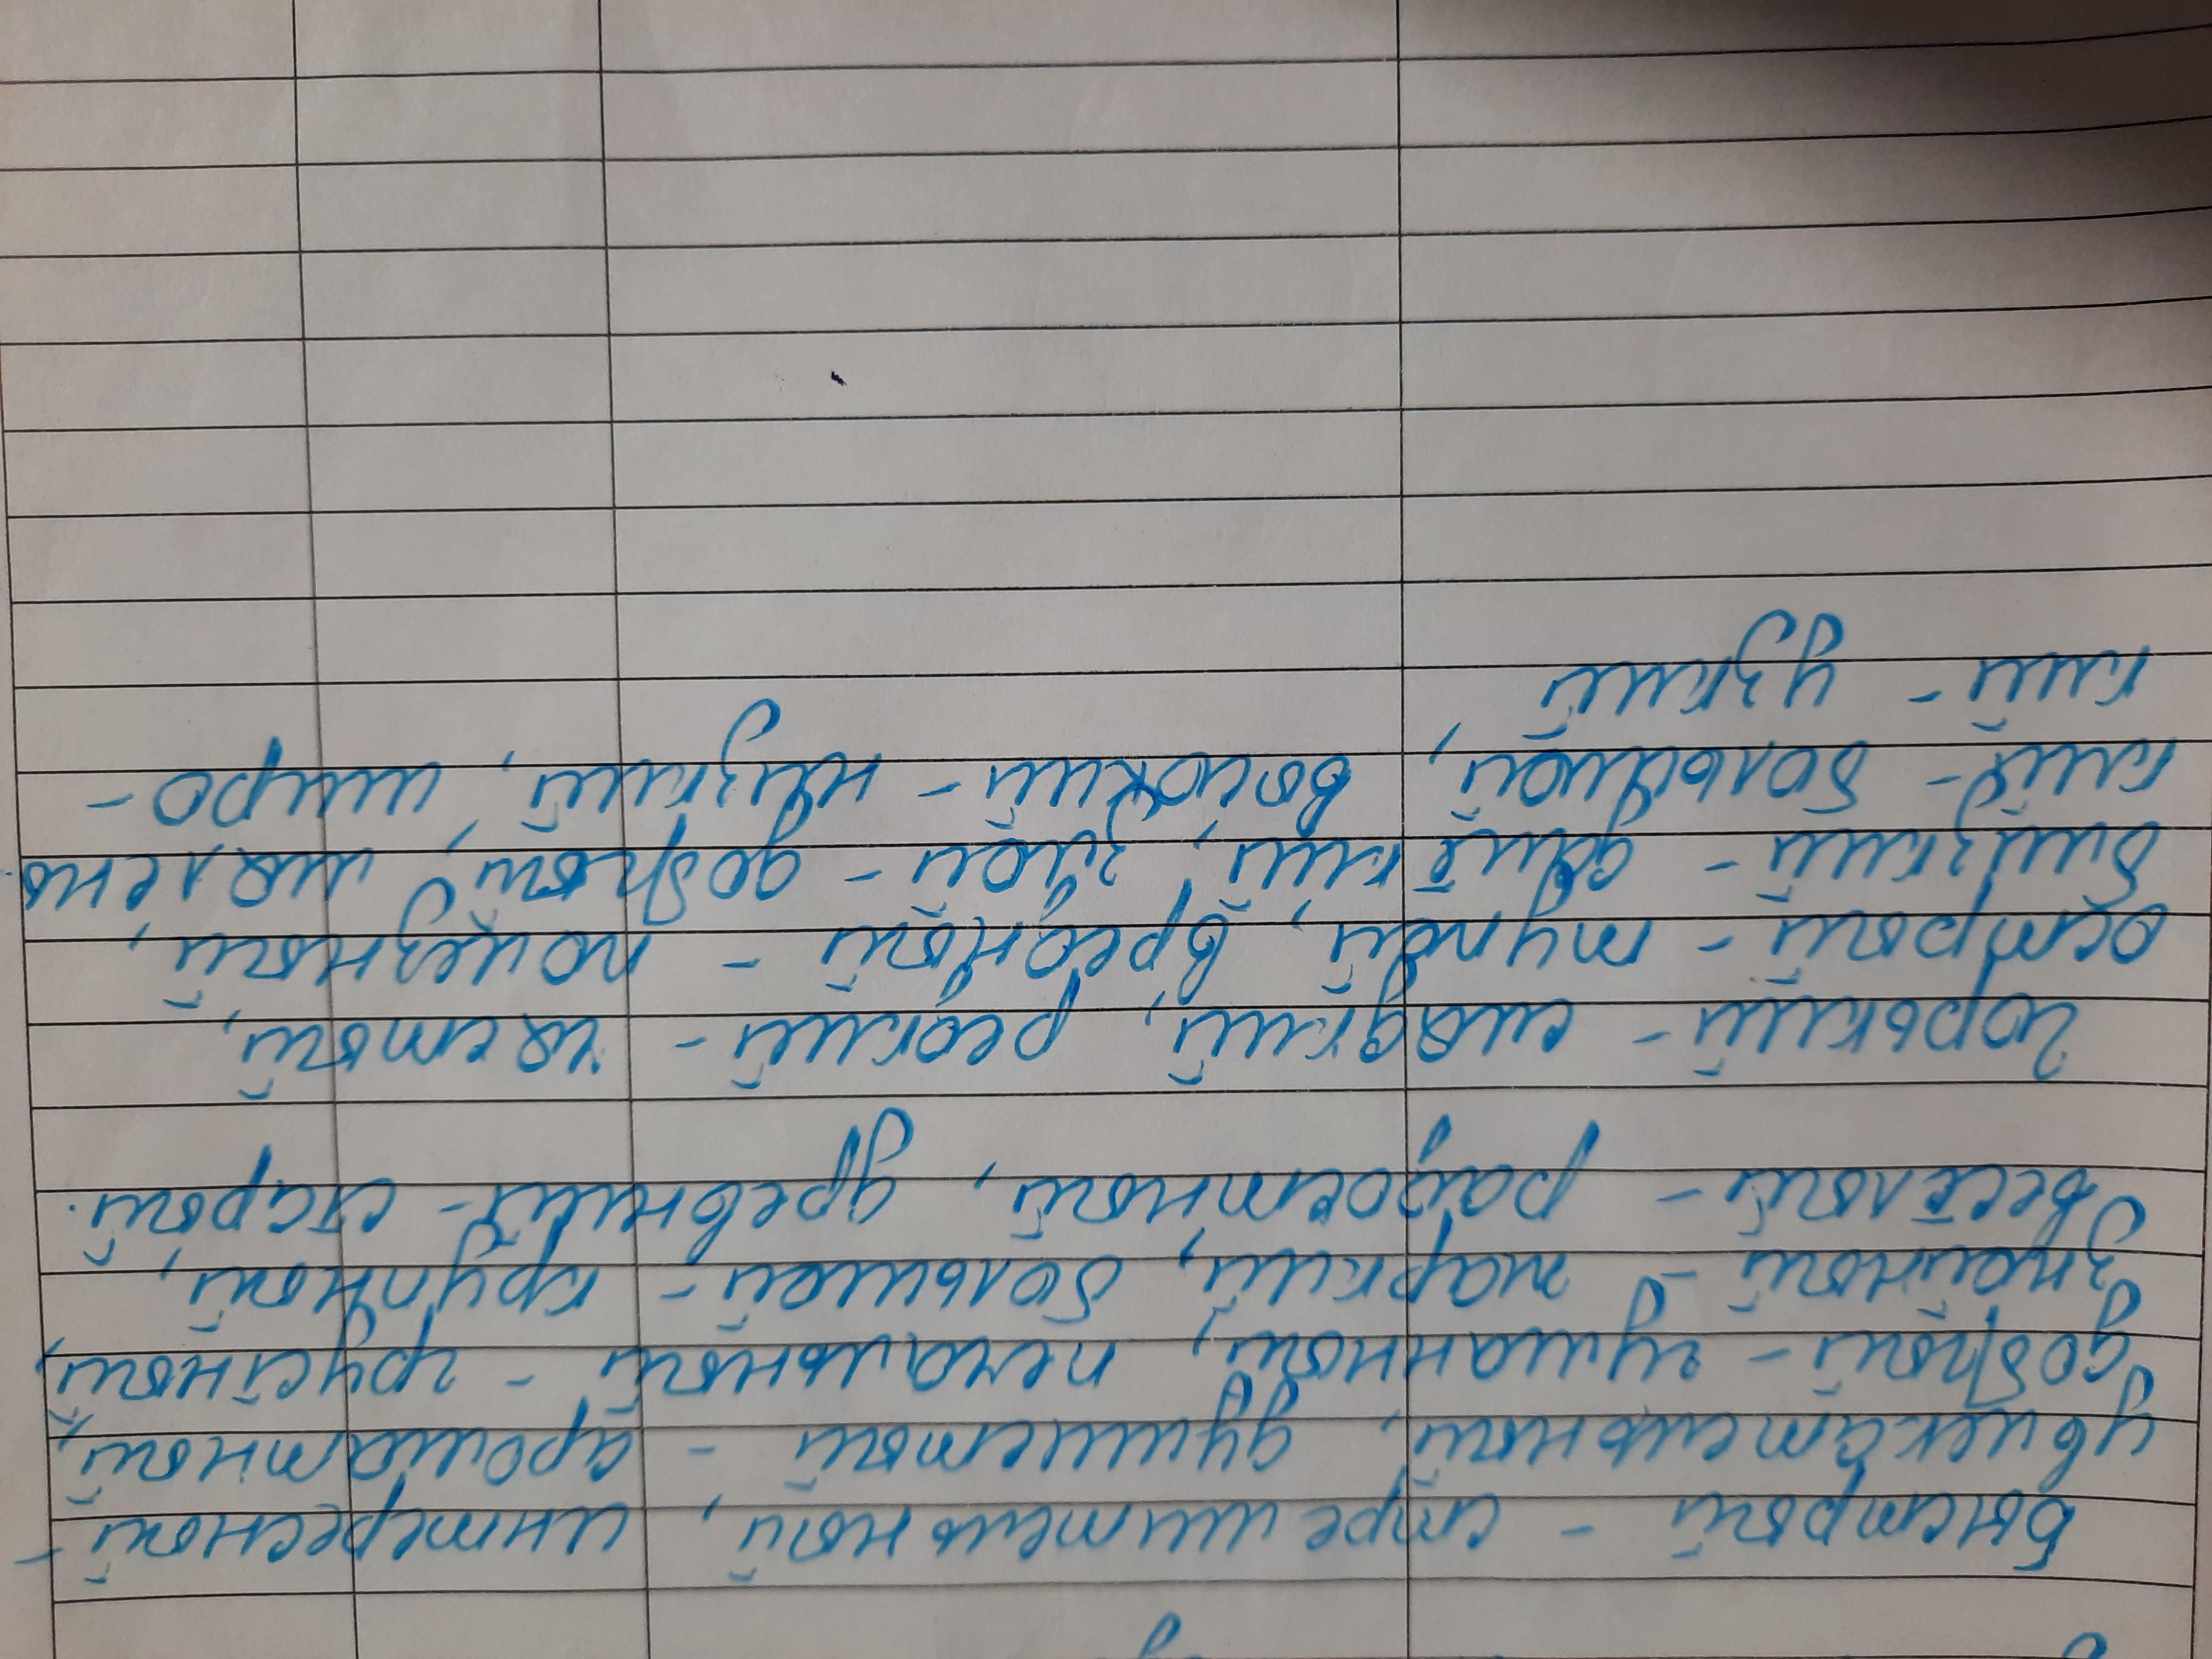 быстрый - стремительный, интересный -
увлекательный, душистый - ароматный,
добрый - гуманный, печальный - грустный,
знойный - жаркий, большой - крупный,
весёлый - радостный, древний - старый.
горький - сладкий, редкий - частый,
острый - тупой, вредный - полезный,
близкий - далёкий, злой - добрый, малень
кий - большой, высокий - низкий, широ-
кий - узкий